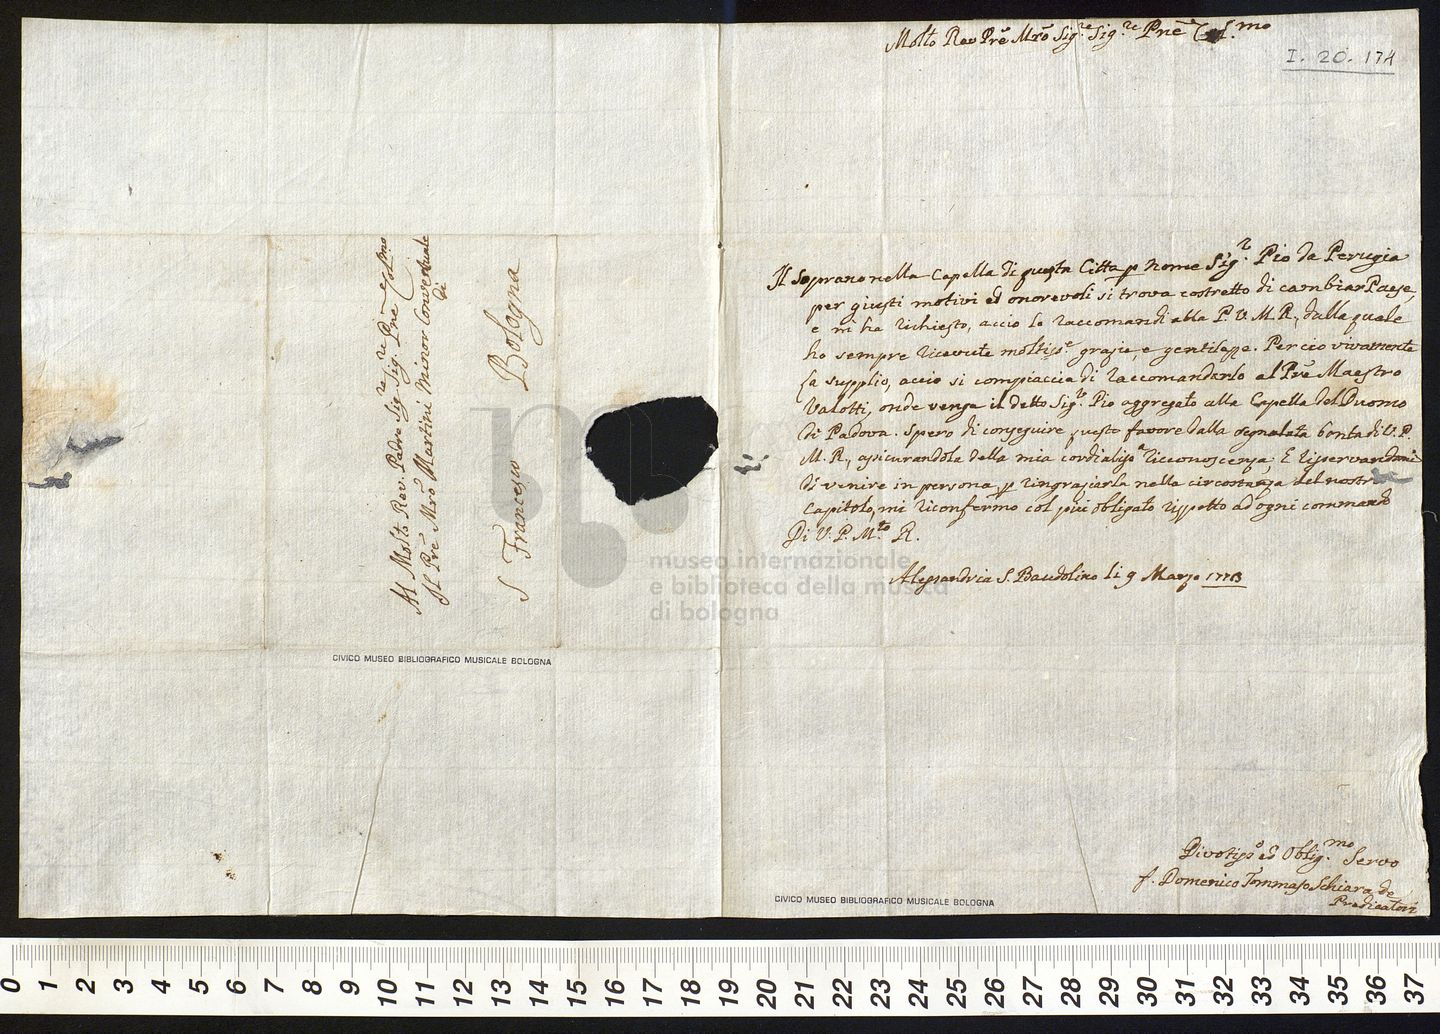 Al Molto Rev. Padre Sig.re Sig.re Pne Col.mo
Il Pre Mro Martini Minor Conventuale
di
S Francesco Bologna
CIVICO MUSEO BIBLIOGRAFICO MUSICALE BOLOGNA
museo internazionale
e biblioteca della musica
di bologna
Molto Rev Pre Mro Sig.re Sig.re Pne Col.mo
I. 20. 174
Il Soprano nella Capella di questa Citta p nome Sig.r Pio da Perugia
per giusti motivi ed onorevoli si trova costretto di cambiar Paese,
e mi ha richiesto, accio lo raccomandi alla P. V. M. R., dalla quale
ho sempre ricevute moltiss.e grazie, e gentilezze. Percio vivamente
la supplio, accio si compiaccia di raccomandarlo al Pre Maestro
Valotti, onde venga il detto Sig.r Pio aggregato alla Capella del Duomo
di Padova. Spero di conseguire questo favore dalla segnalata bonta di V. P.
M. R., assicurandola della mia cordialiss.a riconoscenza; E riservandomi
di venire in persona p ringraziarla nella circostanza del nostro
Capitolo, mi riconfermo col piu obligato rispetto ad ogni commando
Di V. P. M.to R.
Alessandria S. Baudolino li 9 Marzo 1773
Divotiss.o ed Oblig.mo Servo
f. Domenico Tommaso Schiara de
Predicatori
CIVICO MUSEO BIBLIOGRAFICO MUSICALE BOLOGNA
0 1 2 3 4 5 6 7 8 9 10 11 12 13 14 15 16 17 18 19 20 21 22 23 24 25 26 27 28 29 30 31 32 33 34 35 36 37